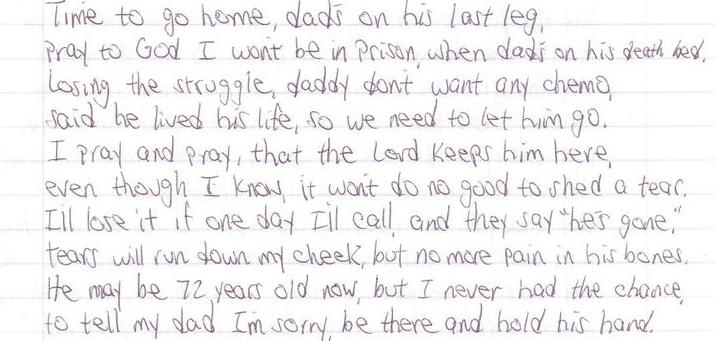 Time to go home, dad's on his last leg,
Pray to God I wont be in Prison, when dad's on his death bed.
Losing the struggle, daddy don't want any chemo,
said he lived his life, so we need to let him go.
I pray and pray, that the Lord keeps him here,
even though I know, it won't do no good to shed a tear.
I'll lose it if one day I'll call, and they say "he's gone,"
tears will run down my cheek, but no more pain in his bones.
He may be 72 years old now, but I never had the chance,
to tell my dad I'm sorry, be there and hold his hand.